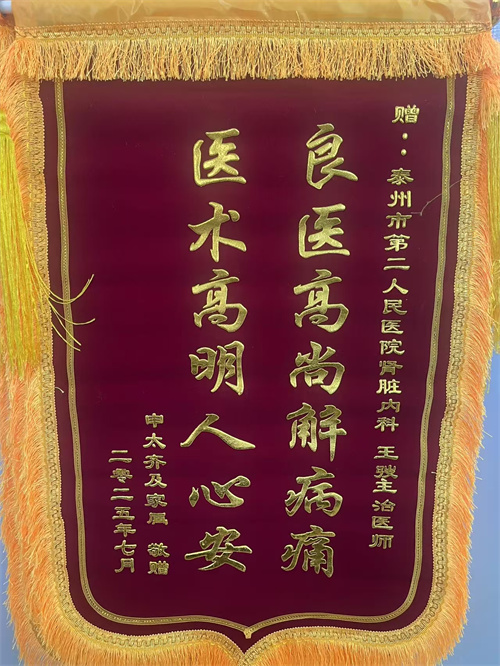 赠：泰州市第二人民医院肾脏内科 王骏主治医师
良医高尚解病痛
医术高明人心安
申太齐及家属 敬赠
二零二五年七月